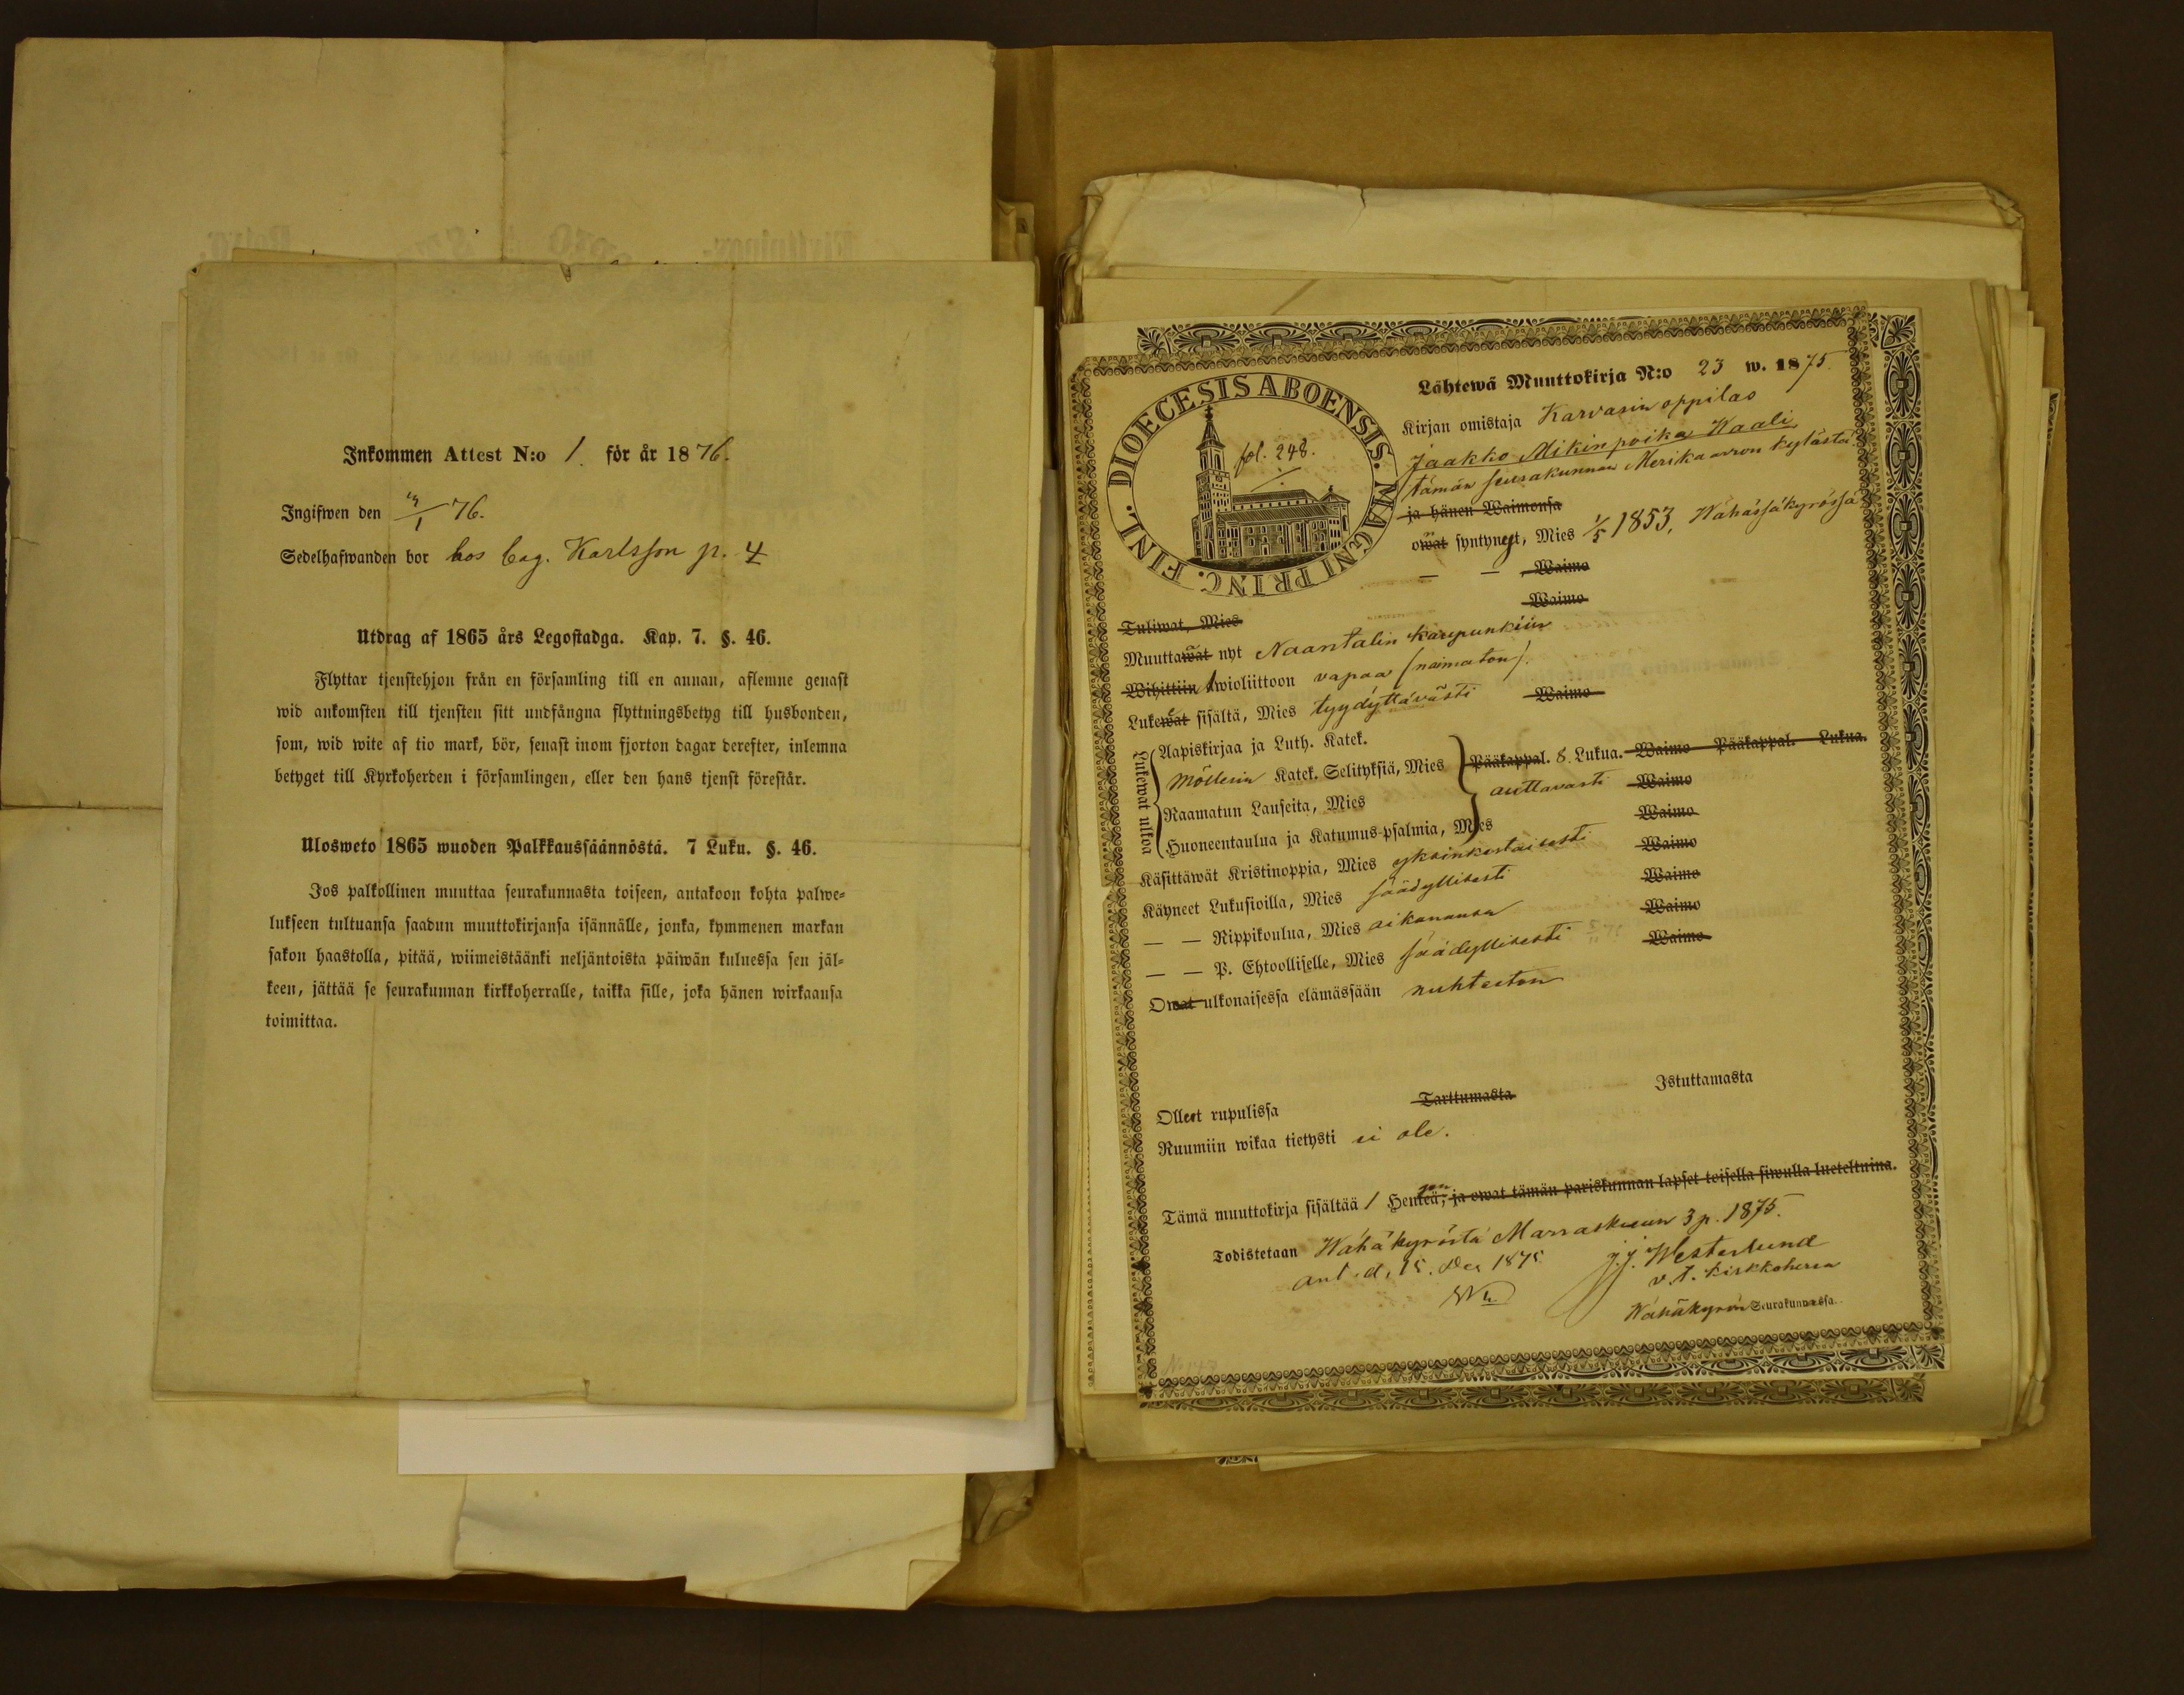 Inkommen Attest N:o 1. för år 1876.
Ingifwen den 4/1 76.
Sedelhafwanden bor hos bag. Karlsson p. 4
Utdrag af 1865 års Legostadga. Kap. 7. §. 46.
Flyttar tjenstehjon från en församling till en annan, aflemne genast
wid ankomsten till tjensten sitt undfångna flyttningsbetyg till husbonden,
som, wid wite af tio mark, bör, senast inom fjorton dagar derefter, inlemna
betyget till Kyrkoherden i församlingen, eller den hans tjenst förestår.
Ulosweto 1865 wuoden Palkkaussäännöstä. 7 Luku. §. 46.
Jos palkollinen muuttaa seurakunnasta toiseen, antakoon kohta palwe-
lukseen tultuansa saadun muuttokirjansa isännälle, jonka, kymmenen markan
sakon haastolla, pitää, wiimeistäänki neljäntoista päiwän kuluessa sen jäl-
keen, jättää se seurakunnan kirkkoherralle, taikka sille, joka hänen wirkaansa
toimittaa.
DIOECESIS ABOENSIS. MAGNI PRINC. FINL.
fol. 248.
Lähtewä Muuttokirja N:o 23 w. 1875.
Kirjan omistaja Karvarin oppilas
Jaakko Mikinpoika Kaali
tämän seurakunnan Merikaarron kylästä
ja hänen Waimonsa
owat syntyneet, Mies 1/5 1853, Wähässäkyrössä
— — , Waimo
Tuliwat, Mies Waimo
Muuttawat nyt Naantalin kaupunkiin
Wihittiin Awioliittoon vapaa (naimaton).
Lukewat sisältä, Mies tyydyttävästi Waimo
Lukewat ulkoa
Aapiskirjaa ja Luth. Katek.
Möllerin Katek. Selityksiä, Mies Pääkappal. 8 Lukua. Waimo Pääkappal. Lukua.
Raamatun Lauseita, Mies auttavasti Waimo
Huoneentaulua ja Katumus-psalmia, Mies Waimo
Käsittäwät Kristinoppia, Mies yksinkertaisesti Waimo
Käyneet Lukusioilla, Mies säädyllisesti Waimo
— — Rippikoulua, Mies aikanansa Waimo
— — P. Ehtoolliselle, Mies säädyllisesti Waimo
Owat ulkonaisessa elämässään nuhteeton
Olleet rupulissa Tarttumasta Istuttamasta
Ruumiin wikaa tietysti ei ole.
Tämä muuttokirja sisältää 1 Henkeä, ja owat tämän pariskunnan lapset toisella siwulla lueteltuina.
Todistetaan Wähäkyröstä Marraskuun 3 p. 1875.
ant. d. 15. Dec 1875
J. J. Westerlund
v. t. kirkkoherra
Wähäkyrön Seurakunnassa.